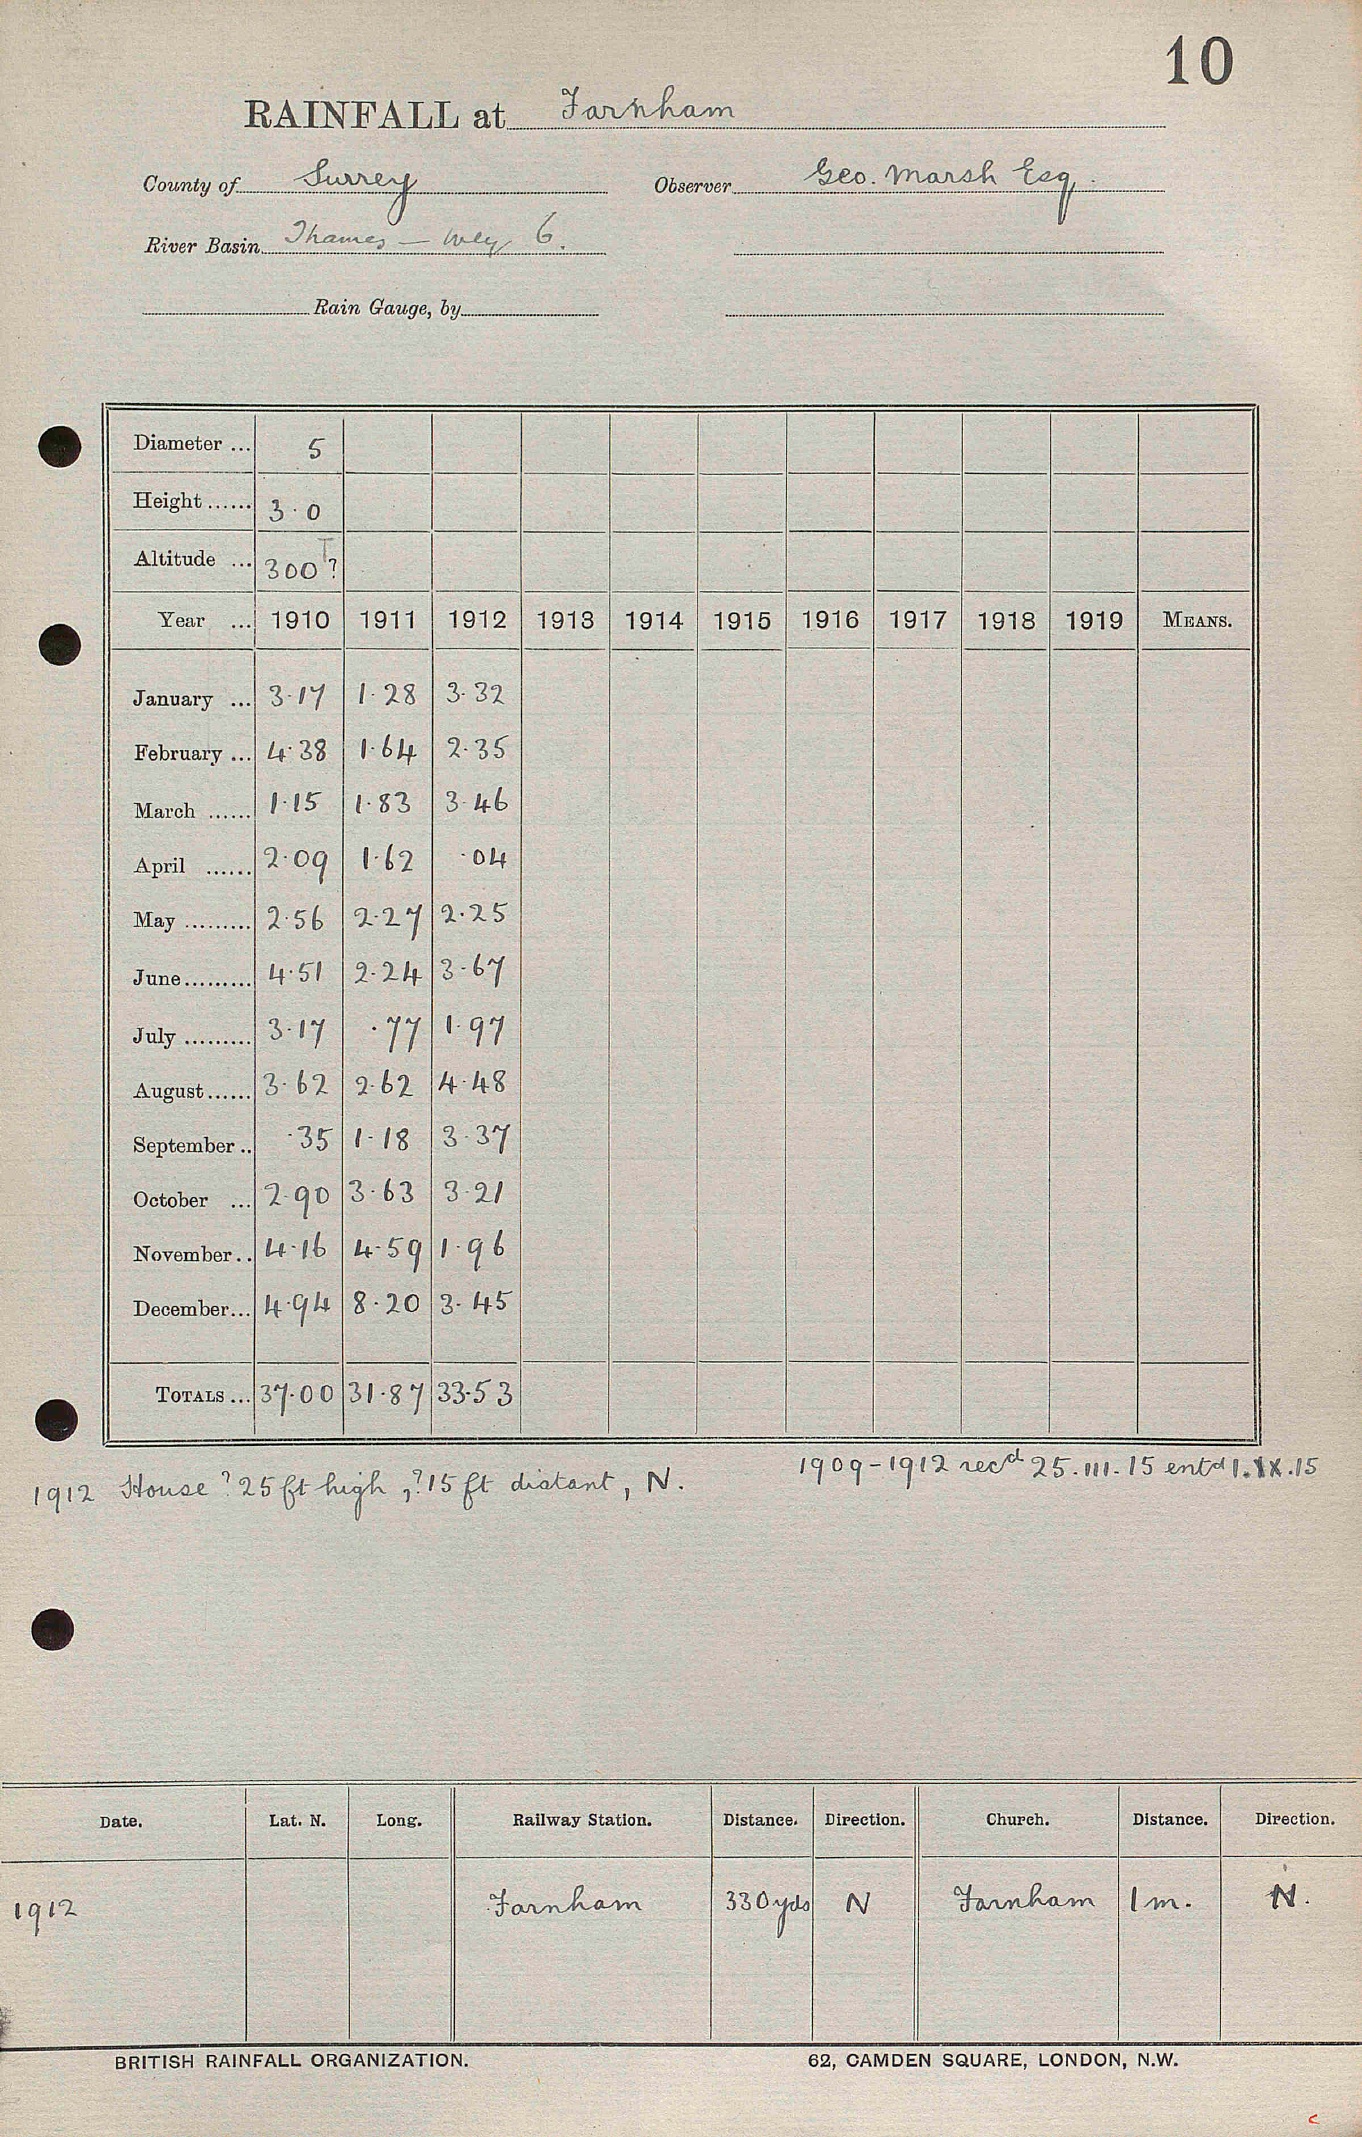 10
RAINFALL at Farnham
County of Surrey Observer Geo. Marsh Esq.
River Basin Thames — Wey 6.
Rain Gauge, by
Diameter ... 5
Height ...... 3·0
Altitude ... 300 T?
Year ... 1910 1911 1912 1913 1914 1915 1916 1917 1918 1919 MEANS.
January ... 3·17 1·28 3·32
February ... 4·38 1·64 2·35
March ...... 1·15 1·83 3·46
April ...... 2·09 1·62 ·04
May ......... 2·56 2·27 2·25
June ......... 4·51 2·24 3·67
July ......... 3·17 ·77 1·97
August ...... 3·62 2·62 4·48
September .. ·35 1·18 3·37
October ... 2·90 3·63 3·21
November .. 4·16 4·59 1·96
December ... 4·94 8·20 3·45
TOTALS ... 37·00 31·87 33·53
1909–1912 recd 25.III.15 entd 1.IX.15
1912 House ? 25 ft high, ? 15 ft distant, N.
Date. Lat. N. Long. Railway Station. Distance. Direction. Church. Distance. Direction.
1912 Farnham 330 yds N Farnham 1 m. N.
BRITISH RAINFALL ORGANIZATION. 62, CAMDEN SQUARE, LONDON, N.W.
c